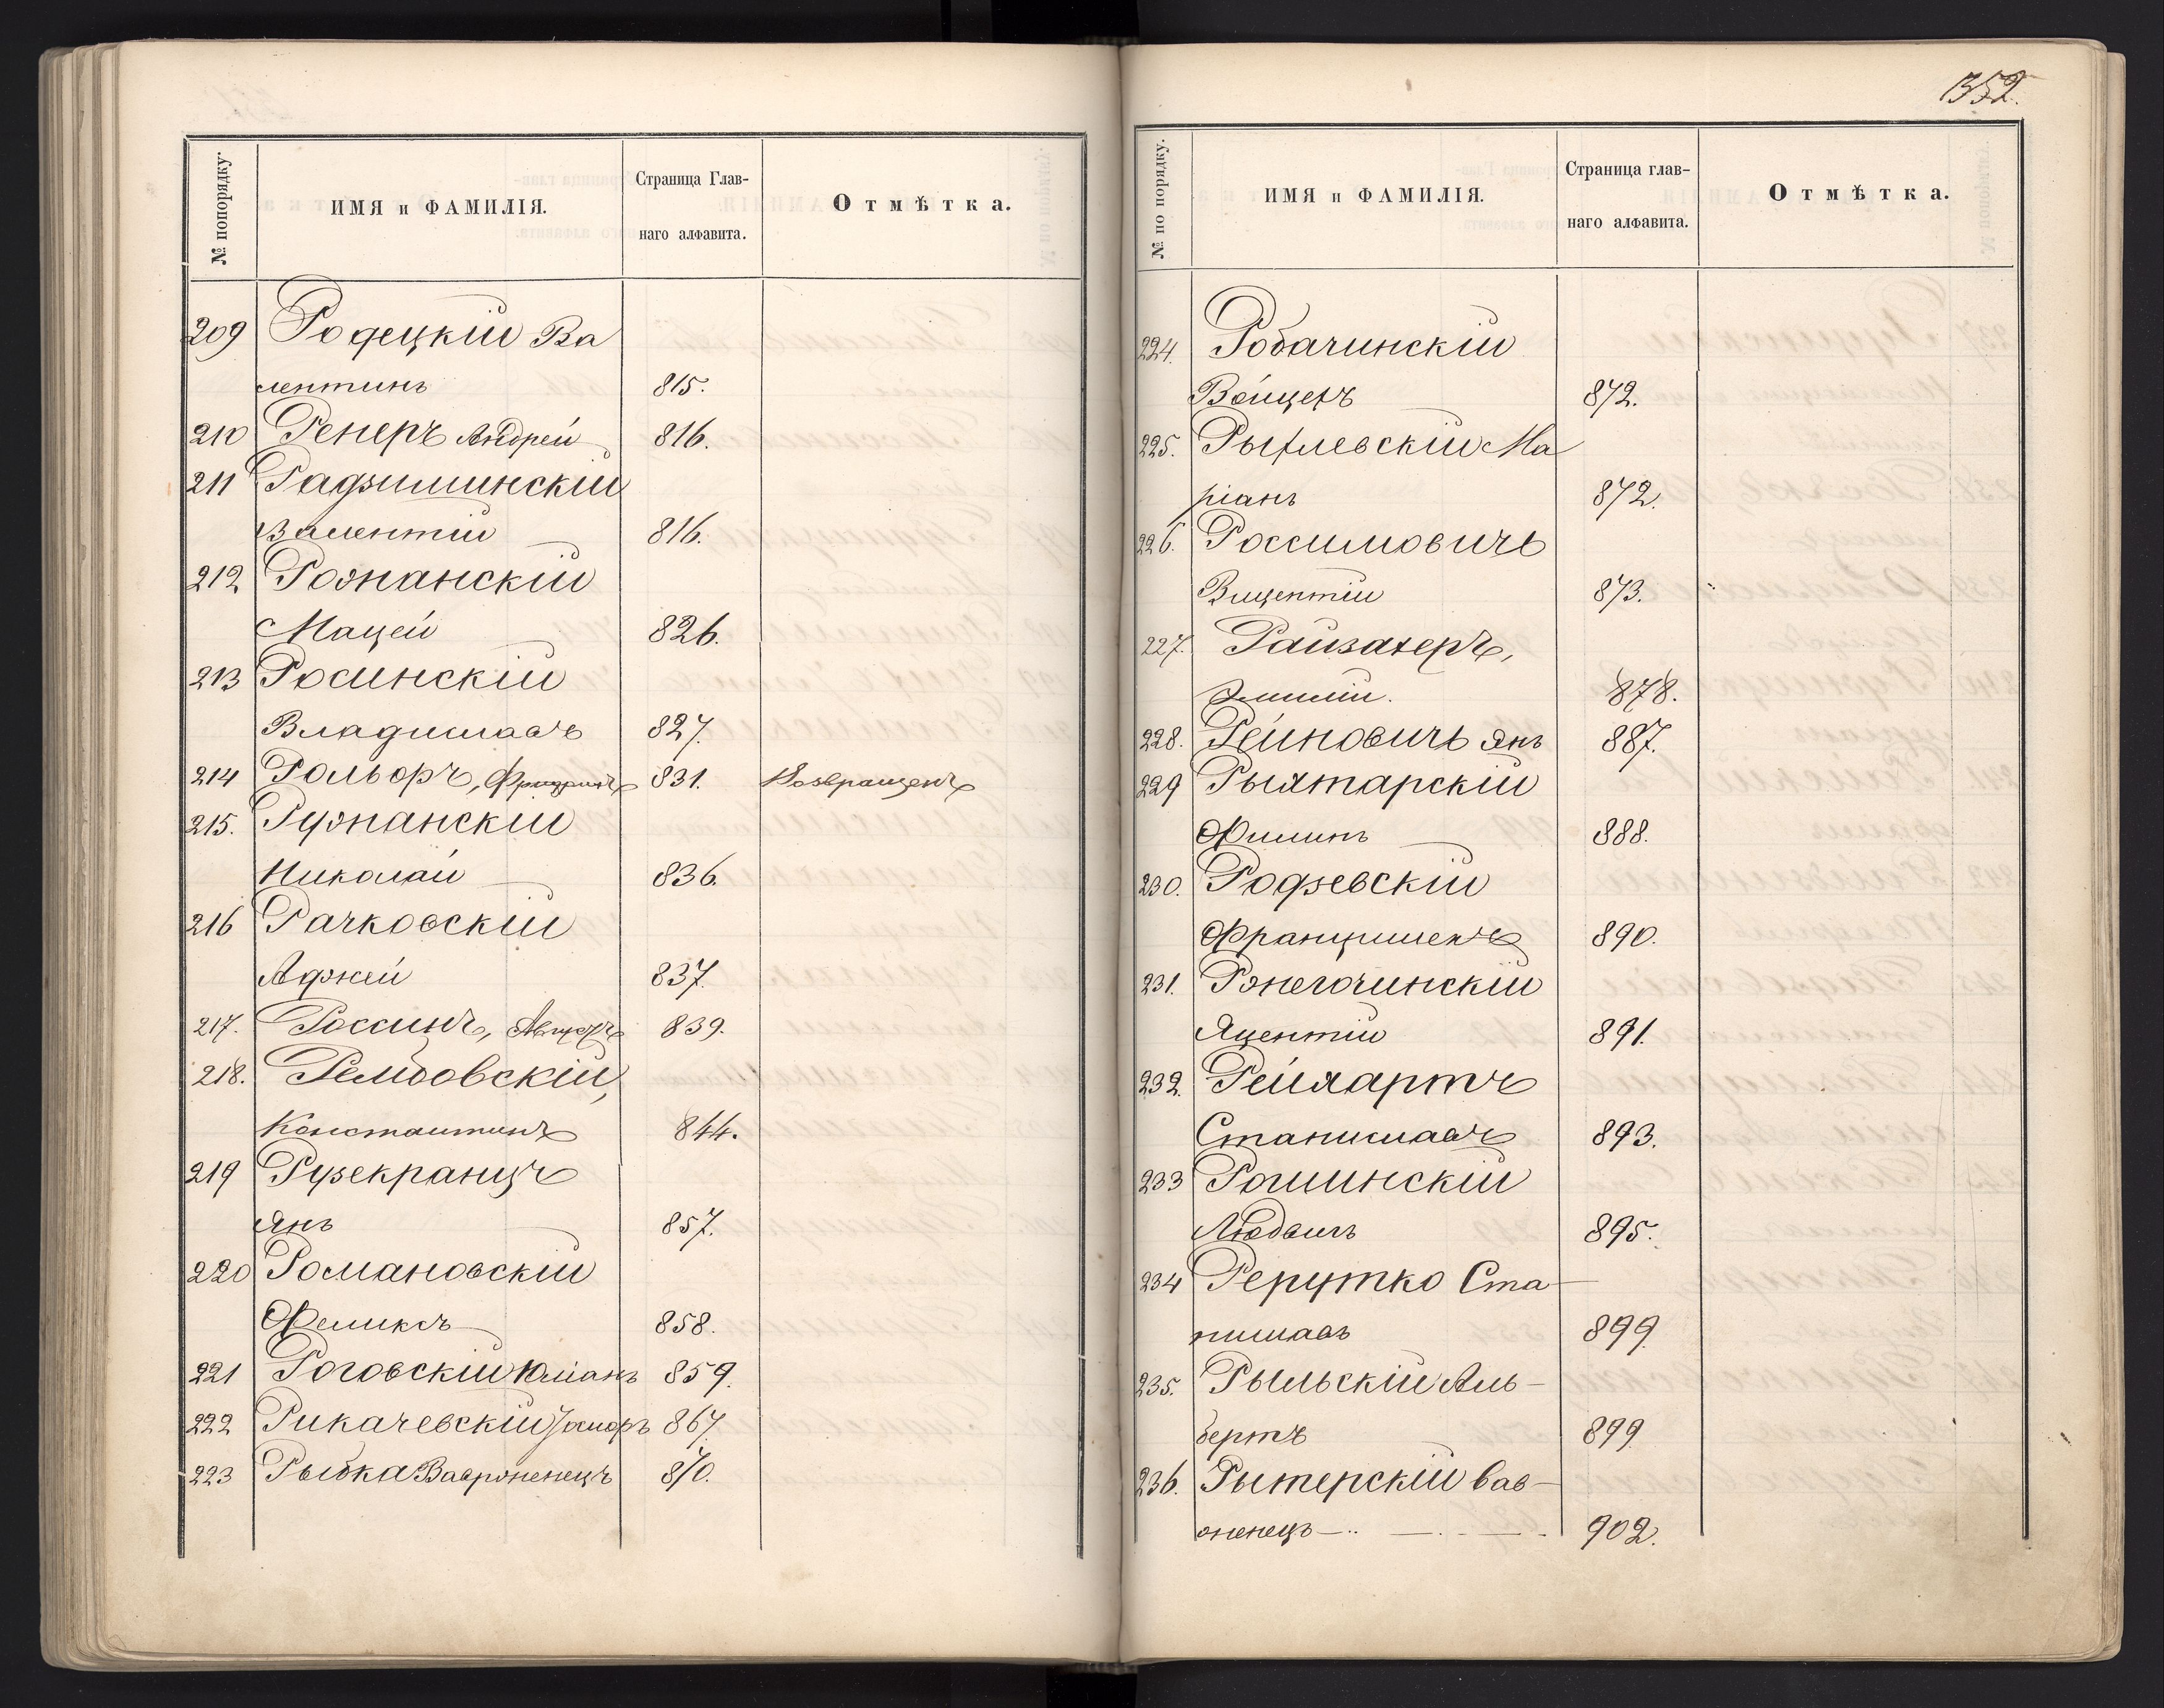 № попорядку.
ИМЯ и ФАМИЛІЯ.
Страница Глав-
наго алфавита.
Отмѣтка.
209 Родецкій Ва
лентинъ 815.
210 Ренеръ Андрей 816.
211 Радзишинскій
Валентій 816.
212 Рознанскій
Мацей 826.
213 Росинскій
Владиславъ 827.
214 Рольоръ, 831. Возвращенъ
215. Рузнанскій
Николай 836.
216 Рачковскій
Анджей 837.
217. Россинъ, 839.
218. Рембовскій,
Константинъ 844.
219 Рузекранцъ
Янъ 857.
220 Романовскій
Феликсъ 858.
221 Роговскій Юліанъ 859.
222 Рикачевскій 867.
223 Рыбка Вавроненецъ 870.
352.
№ по порядку.
ИМЯ и ФАМИЛІЯ.
Страница глав-
наго алфавита.
Отмѣтка.
224. Робачинскій
Войцехъ 872.
225. Рыхлевскій Ма
ріанъ 872.
226. Россимовичъ
Вицентій 873.
227. Райзахеръ,
Эмилій. 878.
228. Рейновичъ Янъ 887.
229 Рыхтарскій
Филипъ 888.
230. Родзевскій
Францишекъ 890.
231. Рнегочинскій
Яцентій 891.
232. Рейхартъ
Станиславъ 893.
233 Рошинскій
Людвигъ 895.
234 Рерутко Ста-
ниславъ 899.
235. Рыльскій Аль-
бертъ 899
236. Рытерскій Вав-
рненецъ 902.